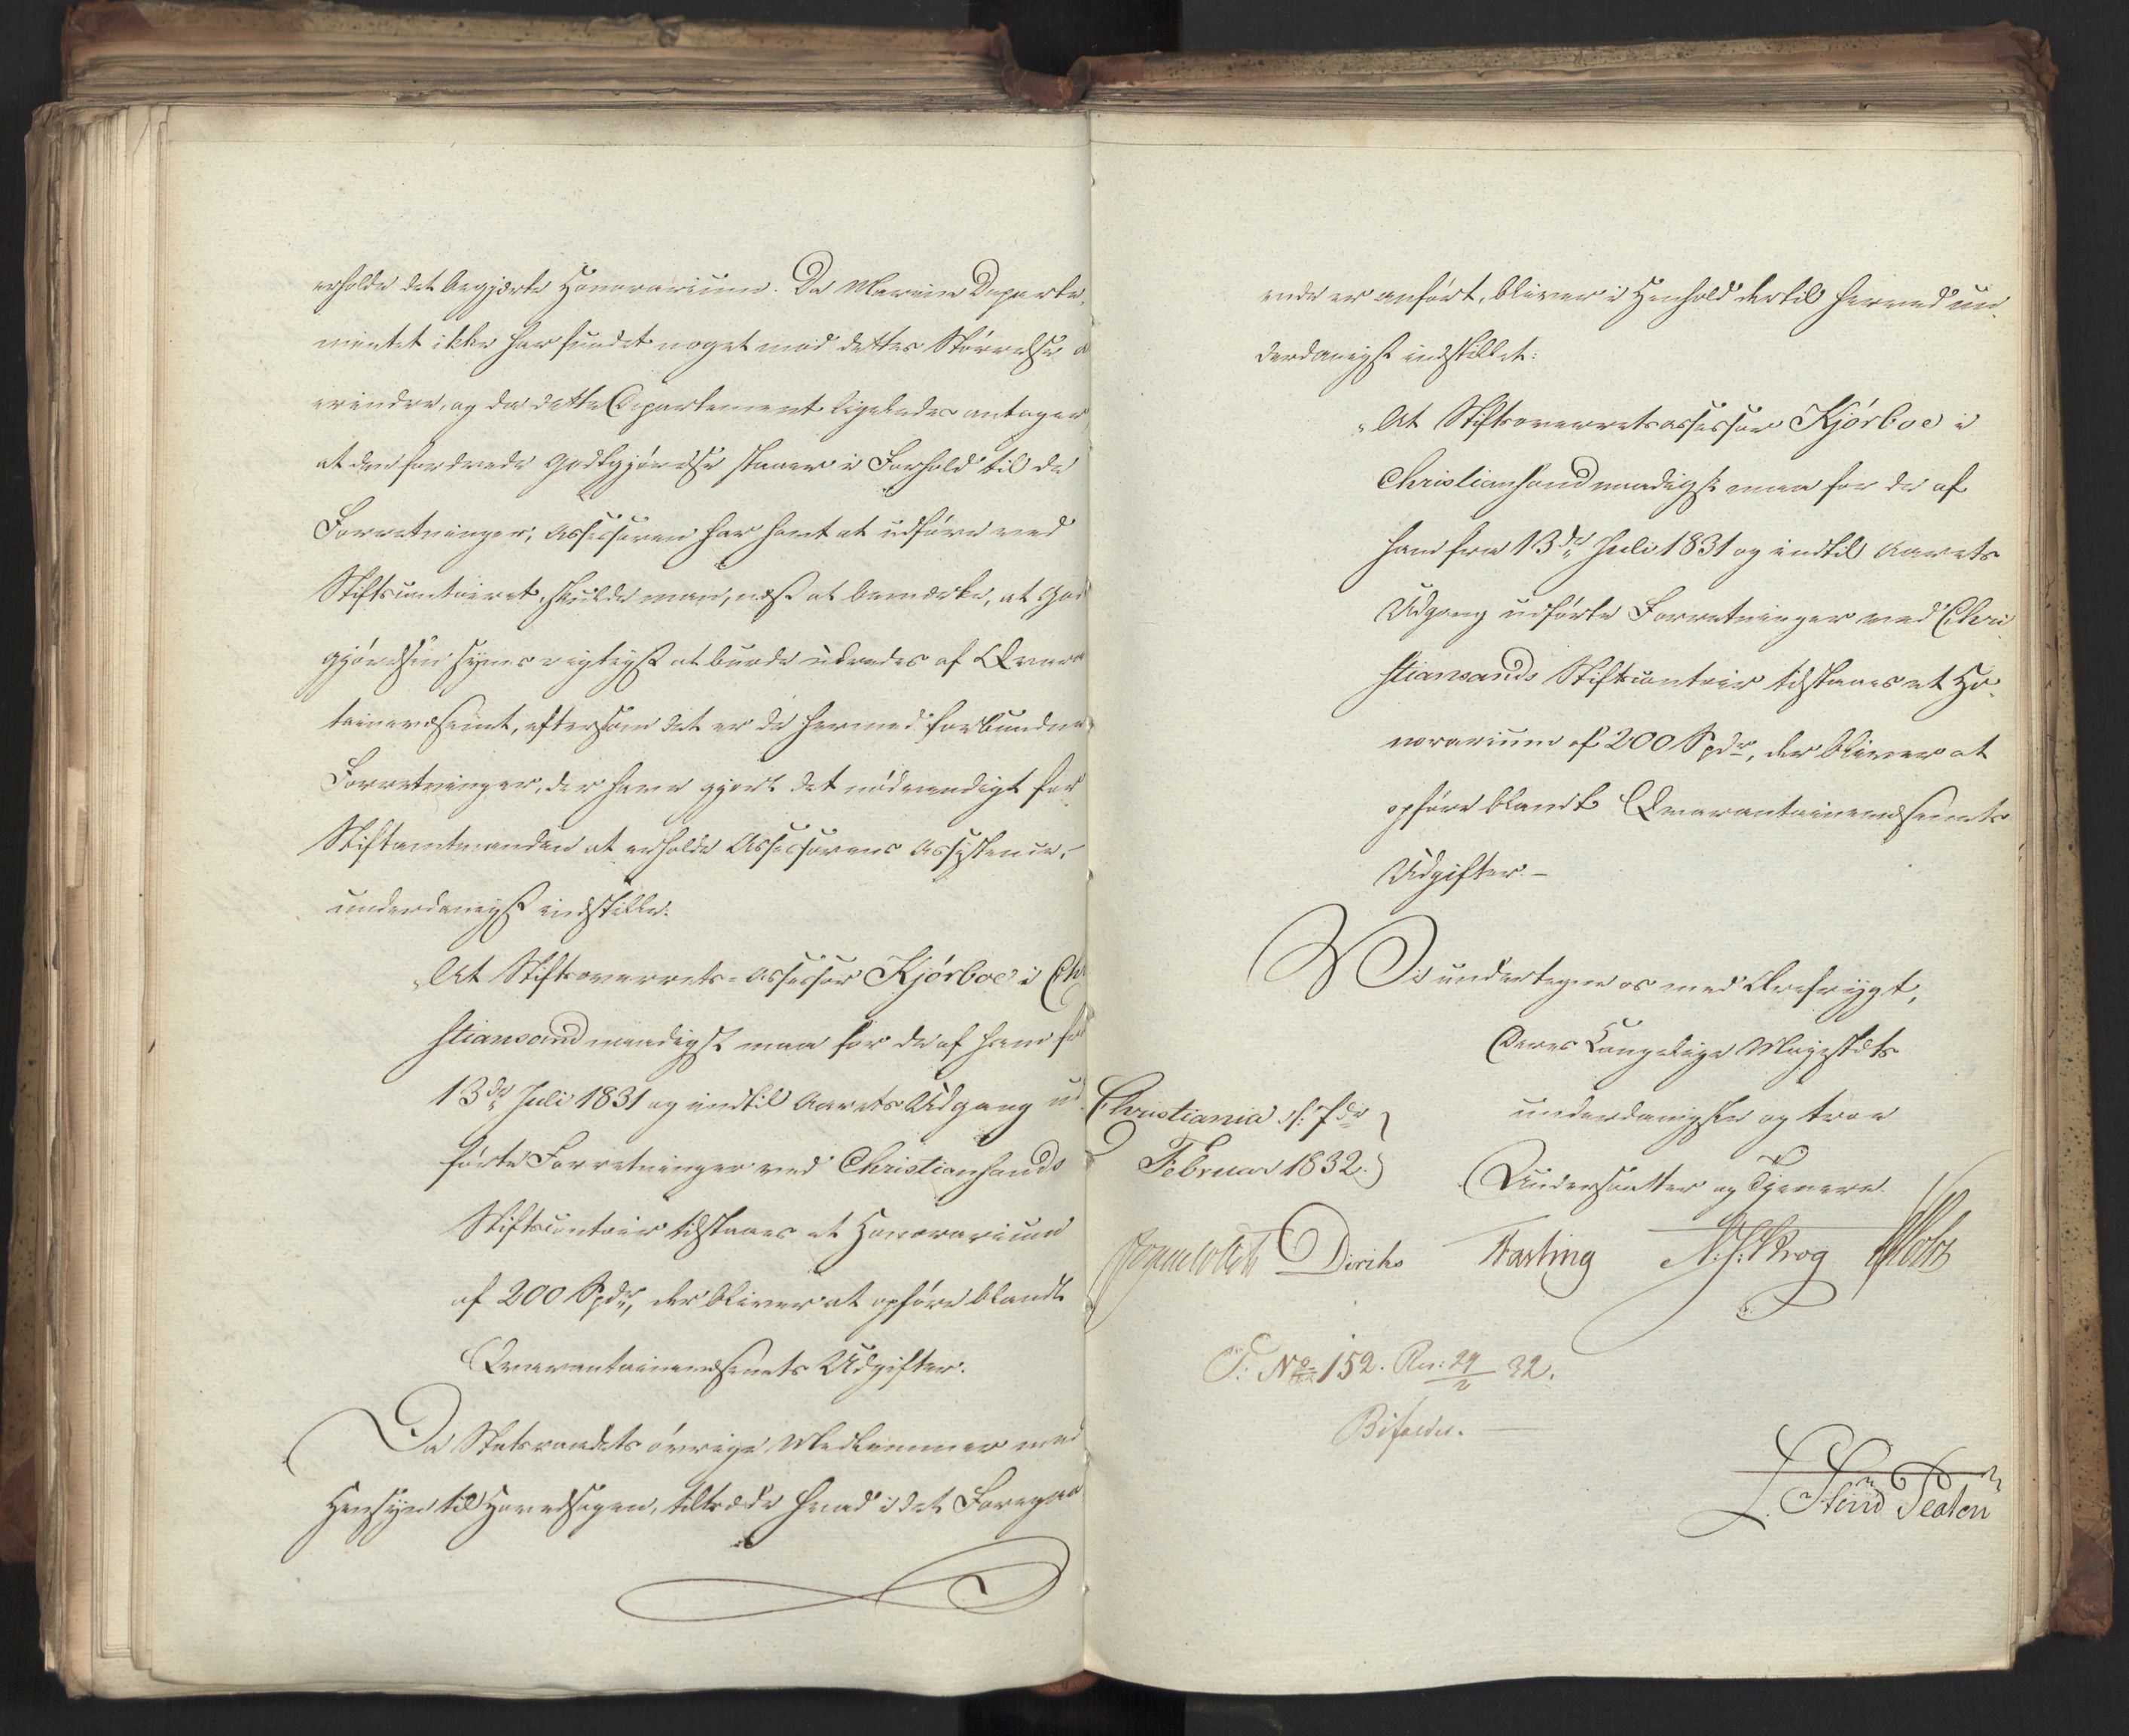 erholde det begjærte Honorarium. Da Marine Departe-
mentet ikke har fundet noget mod dettes Størrelse a
erindre, og da dette Departement ligeledes antager,
at den fordrede Godtgjørelse staaer i Forhold til de
Forretninger, Assessoren har havt at udføre ved
Stiftscontoiret, skulde man, næst at bemærke, at God
gjørelsen synes rigtigst at burde udredes af Qvaran
tainevæsenet, eftersom det er de hermed forbundne
Forretninger, der have gjort det nødvendigt for
Stiftamtmanden at erholde Assessorens Assistence,
underdanigst indstille:
"At Stiftsoverrets-Assessor Kjørboe i Ch
stiansand naadigst maa for de af ham fra
13de Juli 1831 og indtil Aarets Udgang ud
førte Forretninger ved Christiansands
Stiftscontoir tilstaaes et Honorarium
af 200 Spdr, der bliver at opføre blandt
Qvarantainevæsenets Udgifter.
Da Statsraadets øvrige Medlemmer med
Hensyn til Hovedsagen, tiltræde hvad i det Foregaa
ende er anført, bliver i Henhold dertil herved un-
derdanigst indstillet:
"At Stiftsoverretsassessor Kjørboe i
Christiansand naadigst maa for de af
ham fra 13de Juli 1831 og indtil Aarets
Udgang udførte Forretninger ved Chri
stiansands Stiftscontoir tilstaaes et Ho-
norarium af 200 Spdr, der bliver at
opføre blandt Qvarantainevæsenets
Udgifter.-
Vi undertegne os med Ærefrygt,
Deres Kongelige Majestæts
underdanigste og troe
Undersaatter og Tjenere.
Christiania d: 7de
Februar 1832.
Jonas Collett Diriks Fasting N. J. Krog Holst
P: No 152. Res: 29/2 32.
Bifaldes.-